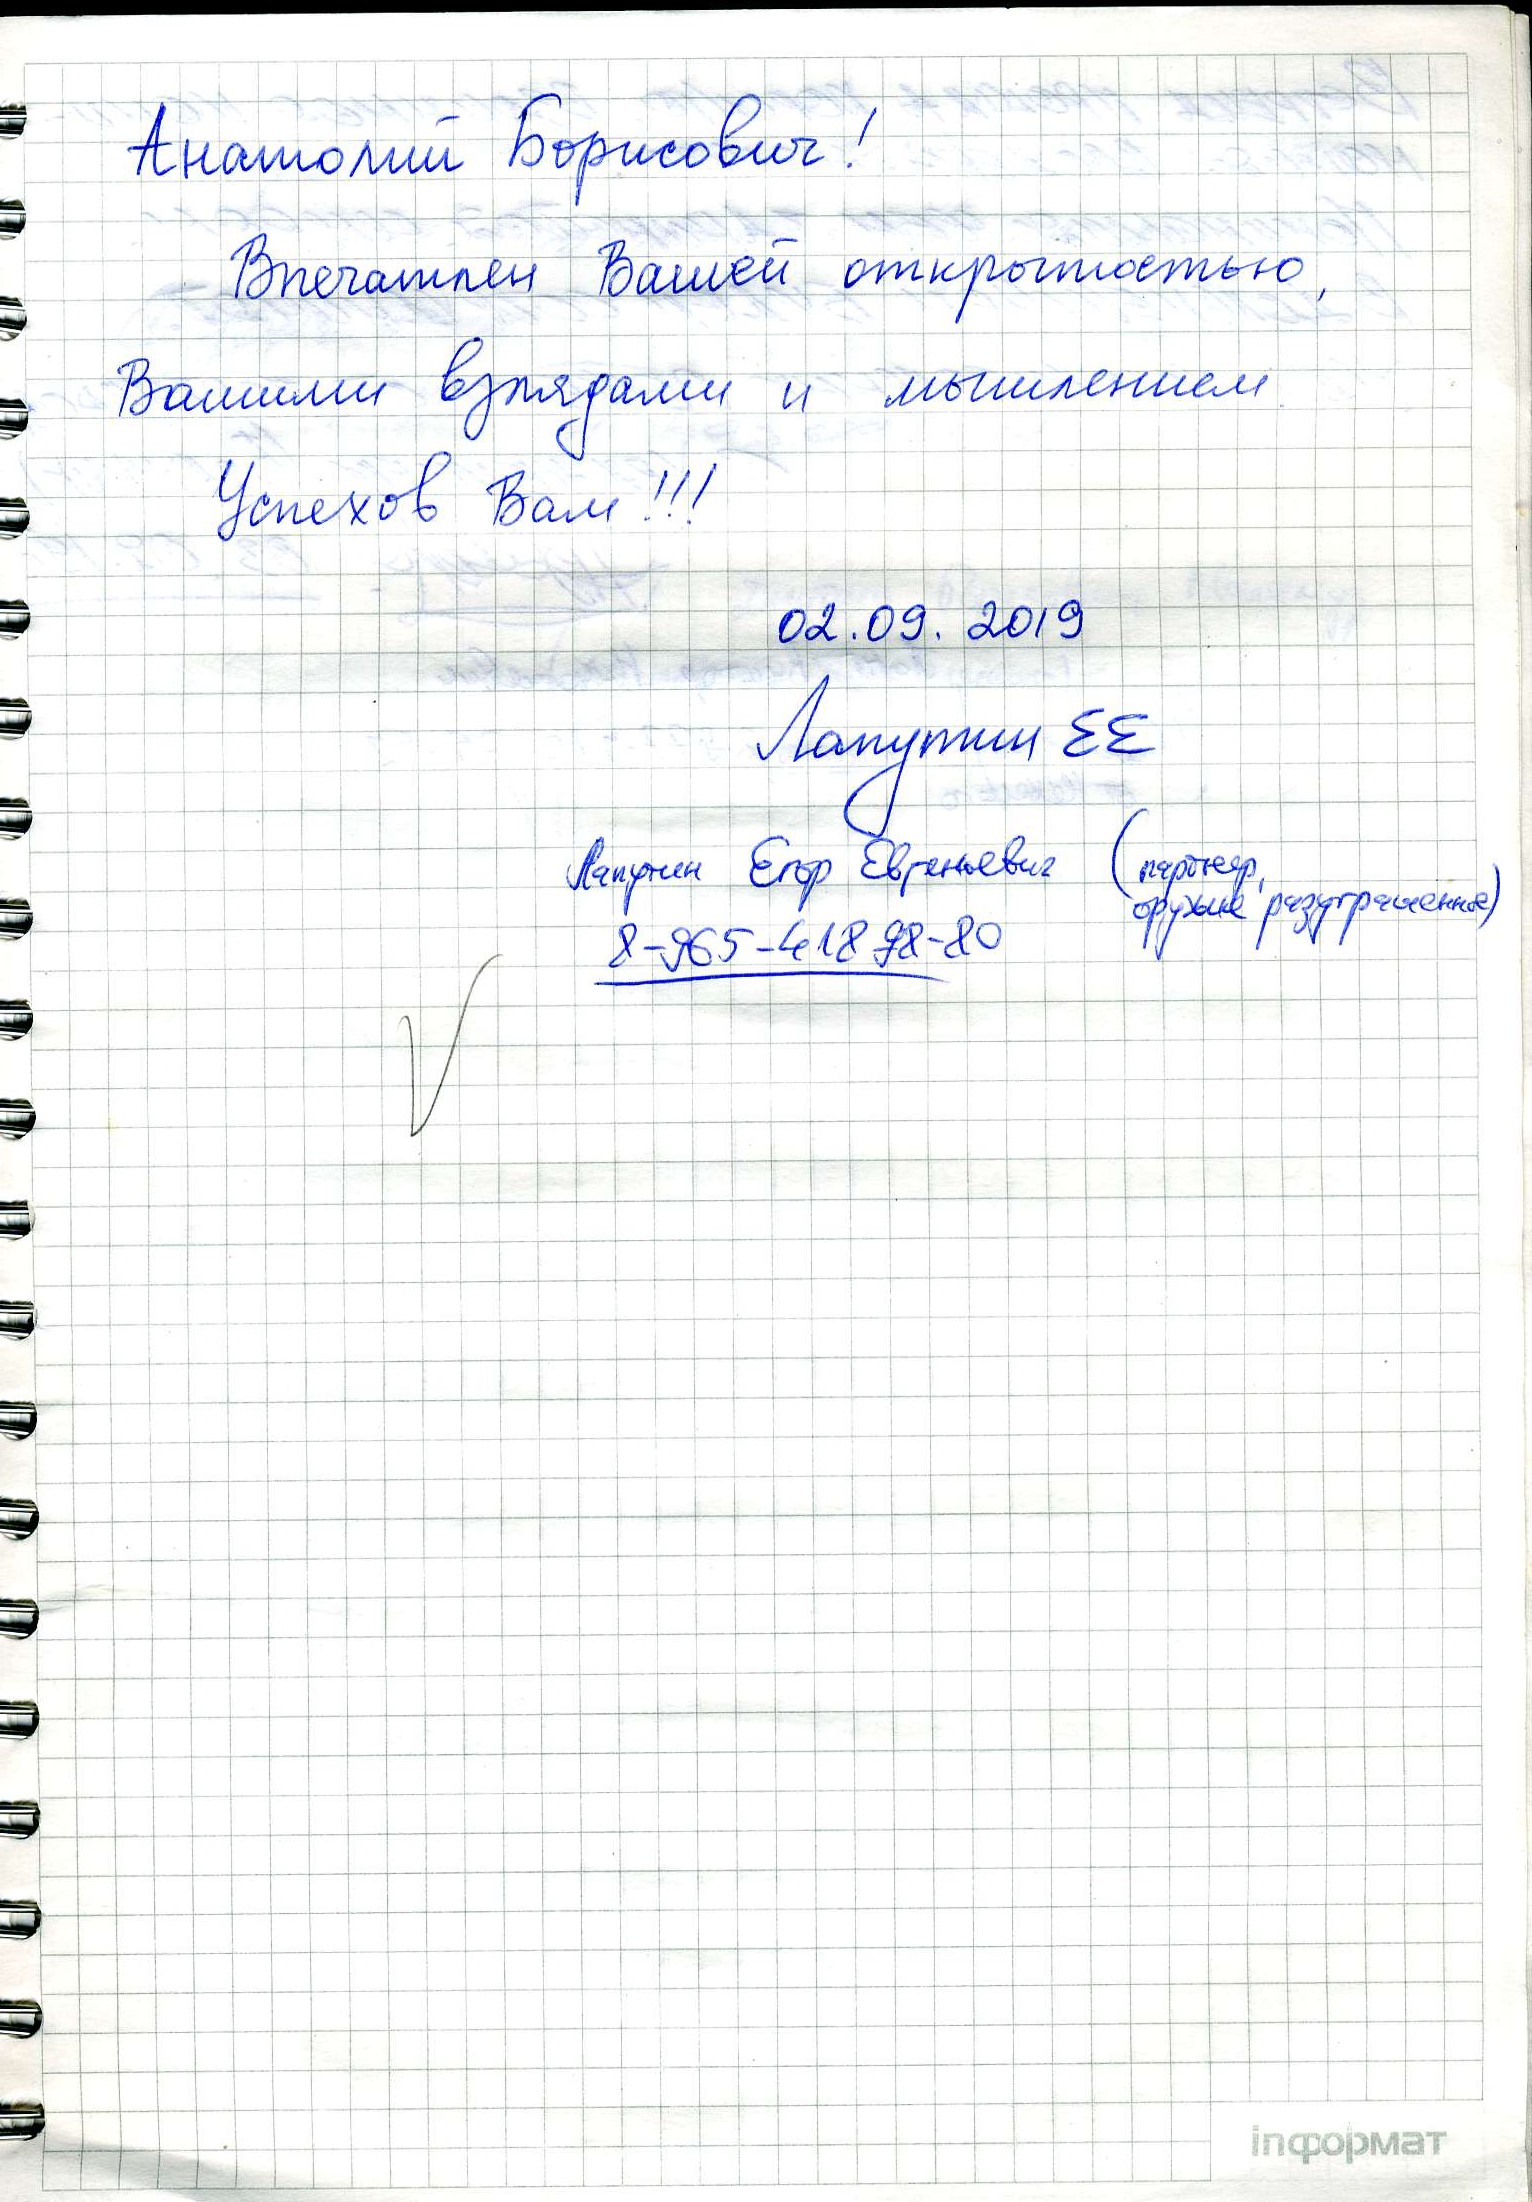 Анатолий Борисович!
Впечатлен Вашей открытостью,
Вашими взглядами и мышлением.
Успехов Вам!!!
02.09.2019
Лапутин ЕЕ
Лапутин Егор Евгеньевич (партнер,
оружие, разукрашенное)
8-965-418 98-80
inформат